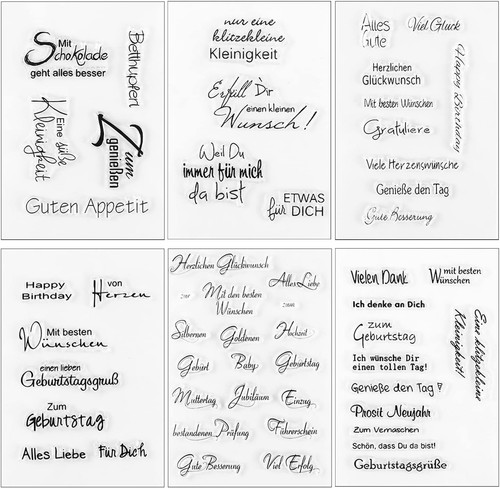 Mit
Schokolade
geht alles besser
Betthupferl
Eine süße
Kleinigkeit
Zum
genießen
Guten Appetit
nur eine
klitzekleine
Kleinigkeit
Erfüll Dir
einen kleinen
Wunsch!
Weil Du
immer für mich
da bist
ETWAS
für DICH
Alles
Gute
Viel Glück
Happy Birthday
Herzlichen
Glückwunsch
Mit besten Wünschen
Gratuliere
Viele Herzenswünsche
Genieße den Tag
Gute Besserung
Happy
Birthday
von
Herzen
Mit besten
Wünschen
einen lieben
Geburtstagsgruß
Zum
Geburtstag
Alles Liebe
Für Dich
Herzlichen Glückwunsch
Alles Liebe
zur
Mit den besten
Wünschen
zum
Silbernen
Goldenen
Hochzeit
Geburt
Baby
Geburtstag
Muttertag
Jubiläum
Einzug
bestandenen Prüfung
Führerschein
Gute Besserung
Viel Erfolg
Vielen Dank
mit besten
Wünschen
Ich denke an Dich
zum
Geburtstag
Eine klitzekleine
Kleinigkeit!
Ich wünsche Dir
einen tollen Tag!
Genieße den Tag
Prosit Neujahr
Zum Vernaschen
Schön, dass Du da bist!
Geburtstagsgrüße